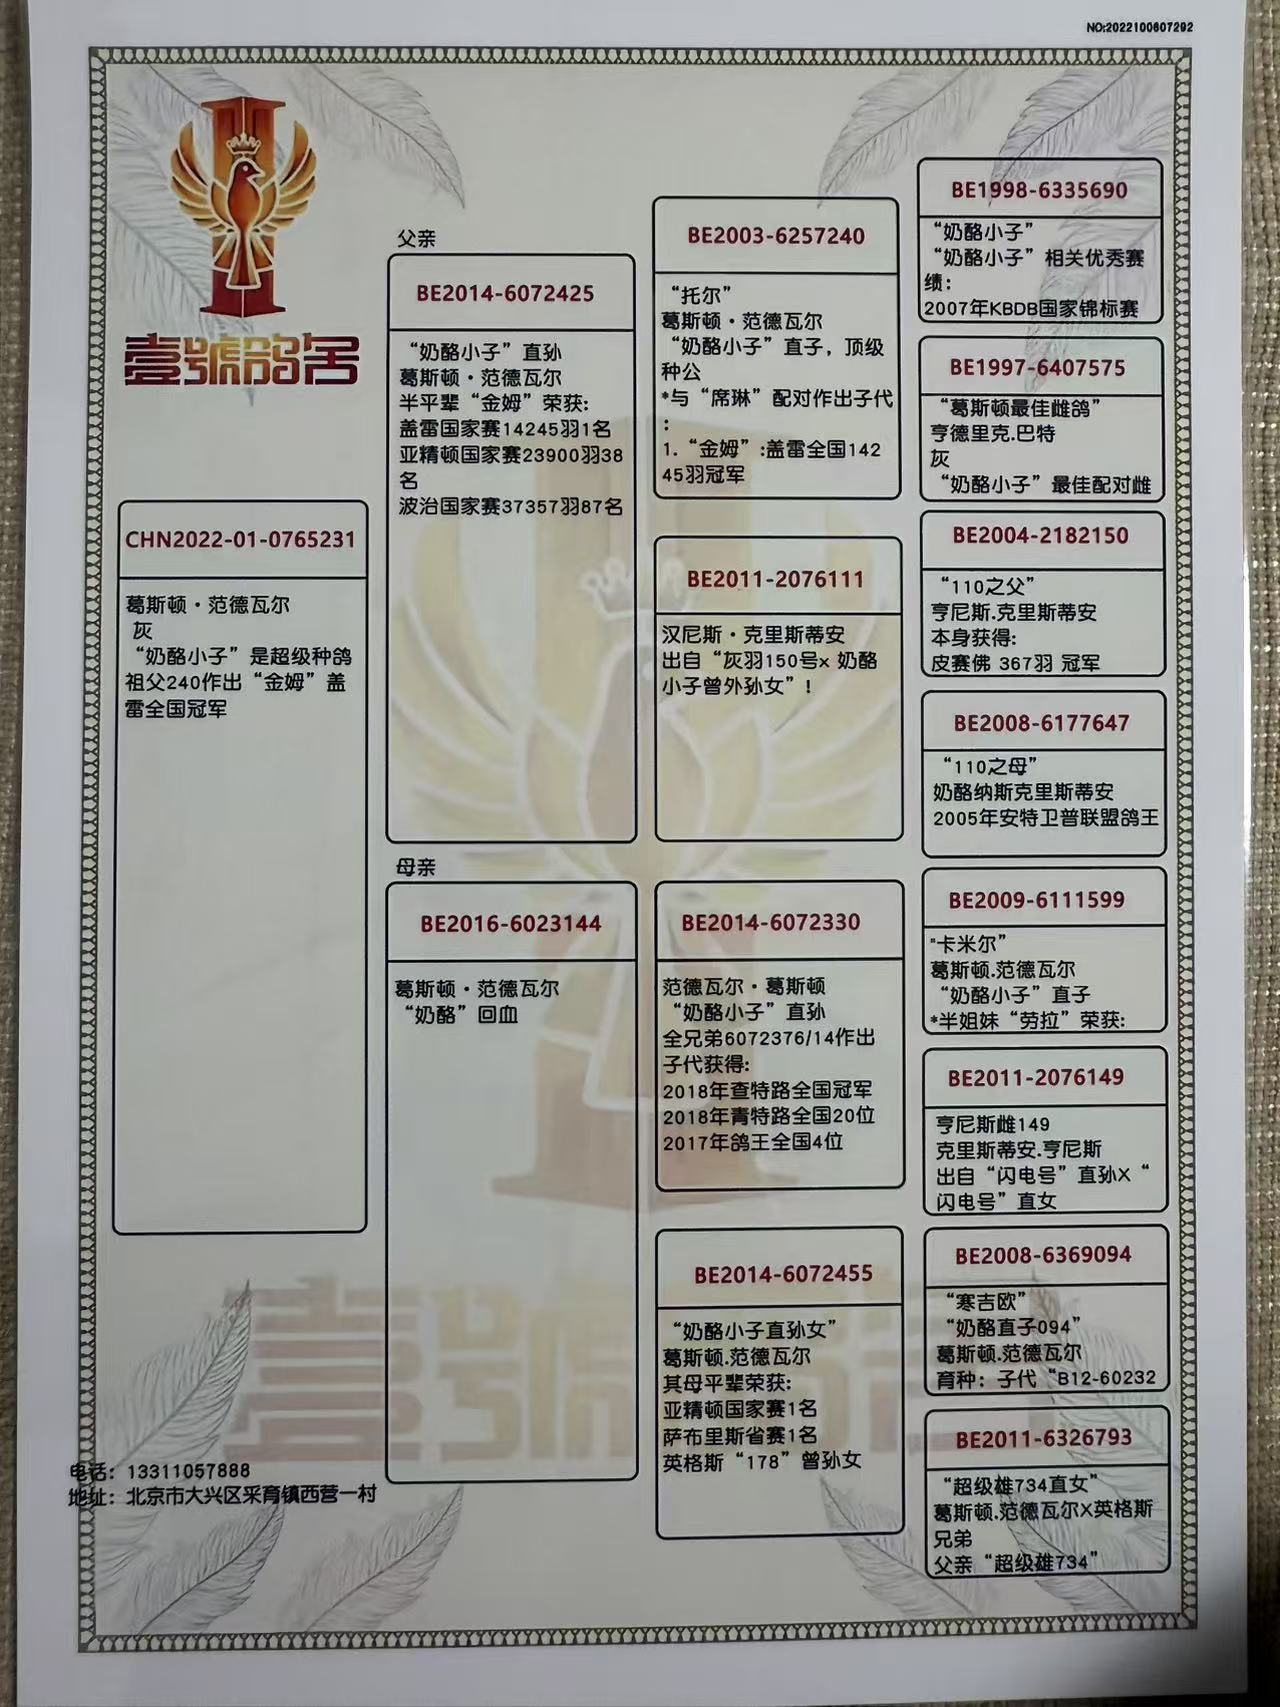 NO:2022100607292
壹號鸽舍
CHN2022-01-0765231
葛斯顿·范德瓦尔
灰
“奶酪小子”是超级种鸽
祖父240作出“金姆”盖
雷全国冠军
父亲
BE2014-6072425
“奶酪小子”直孙
葛斯顿·范德瓦尔
半平辈“金姆”荣获:
盖雷国家赛14245羽1名
亚精顿国家赛23900羽38
名
波治国家赛37357羽87名
母亲
BE2016-6023144
葛斯顿·范德瓦尔
“奶酪”回血
BE2003-6257240
“托尔”
葛斯顿·范德瓦尔
“奶酪小子”直子，顶级
种公
*与“席琳”配对作出子代
:
1.“金姆”:盖雷全国142
45羽冠军
BE2011-2076111
汉尼斯·克里斯蒂安
出自“灰羽150号x 奶酪
小子曾外孙女”!
BE2014-6072330
范德瓦尔·葛斯顿
“奶酪小子”直孙
全兄弟6072376/14作出
子代获得:
2018年查特路全国冠军
2018年青特路全国20位
2017年鸽王全国4位
BE2014-6072455
“奶酪小子直孙女”
葛斯顿.范德瓦尔
其母平辈荣获:
亚精顿国家赛1名
萨布里斯省赛1名
英格斯“178”曾孙女
BE1998-6335690
“奶酪小子”
“奶酪小子”相关优秀赛
绩:
2007年KBDB国家锦标赛
BE1997-6407575
“葛斯顿最佳雌鸽”
亨德里克.巴特
灰
“奶酪小子”最佳配对雌
BE2004-2182150
“110之父”
亨尼斯.克里斯蒂安
本身获得:
皮赛佛 367羽 冠军
BE2008-6177647
“110之母”
奶酪纳斯克里斯蒂安
2005年安特卫普联盟鸽王
BE2009-6111599
"卡米尔”
葛斯顿.范德瓦尔
“奶酪小子”直子
*半姐妹“劳拉”荣获:
BE2011-2076149
亨尼斯雌149
克里斯蒂安.亨尼斯
出自“闪电号”直孙X“
闪电号”直女
BE2008-6369094
“寒吉欧”
“奶酪直子094”
葛斯顿.范德瓦尔
育种：子代“B12-60232
BE2011-6326793
“超级雄734直女”
葛斯顿.范德瓦尔X英格斯
兄弟
父亲“超级雄734”
电话：13311057888
地址：北京市大兴区采育镇西营一村